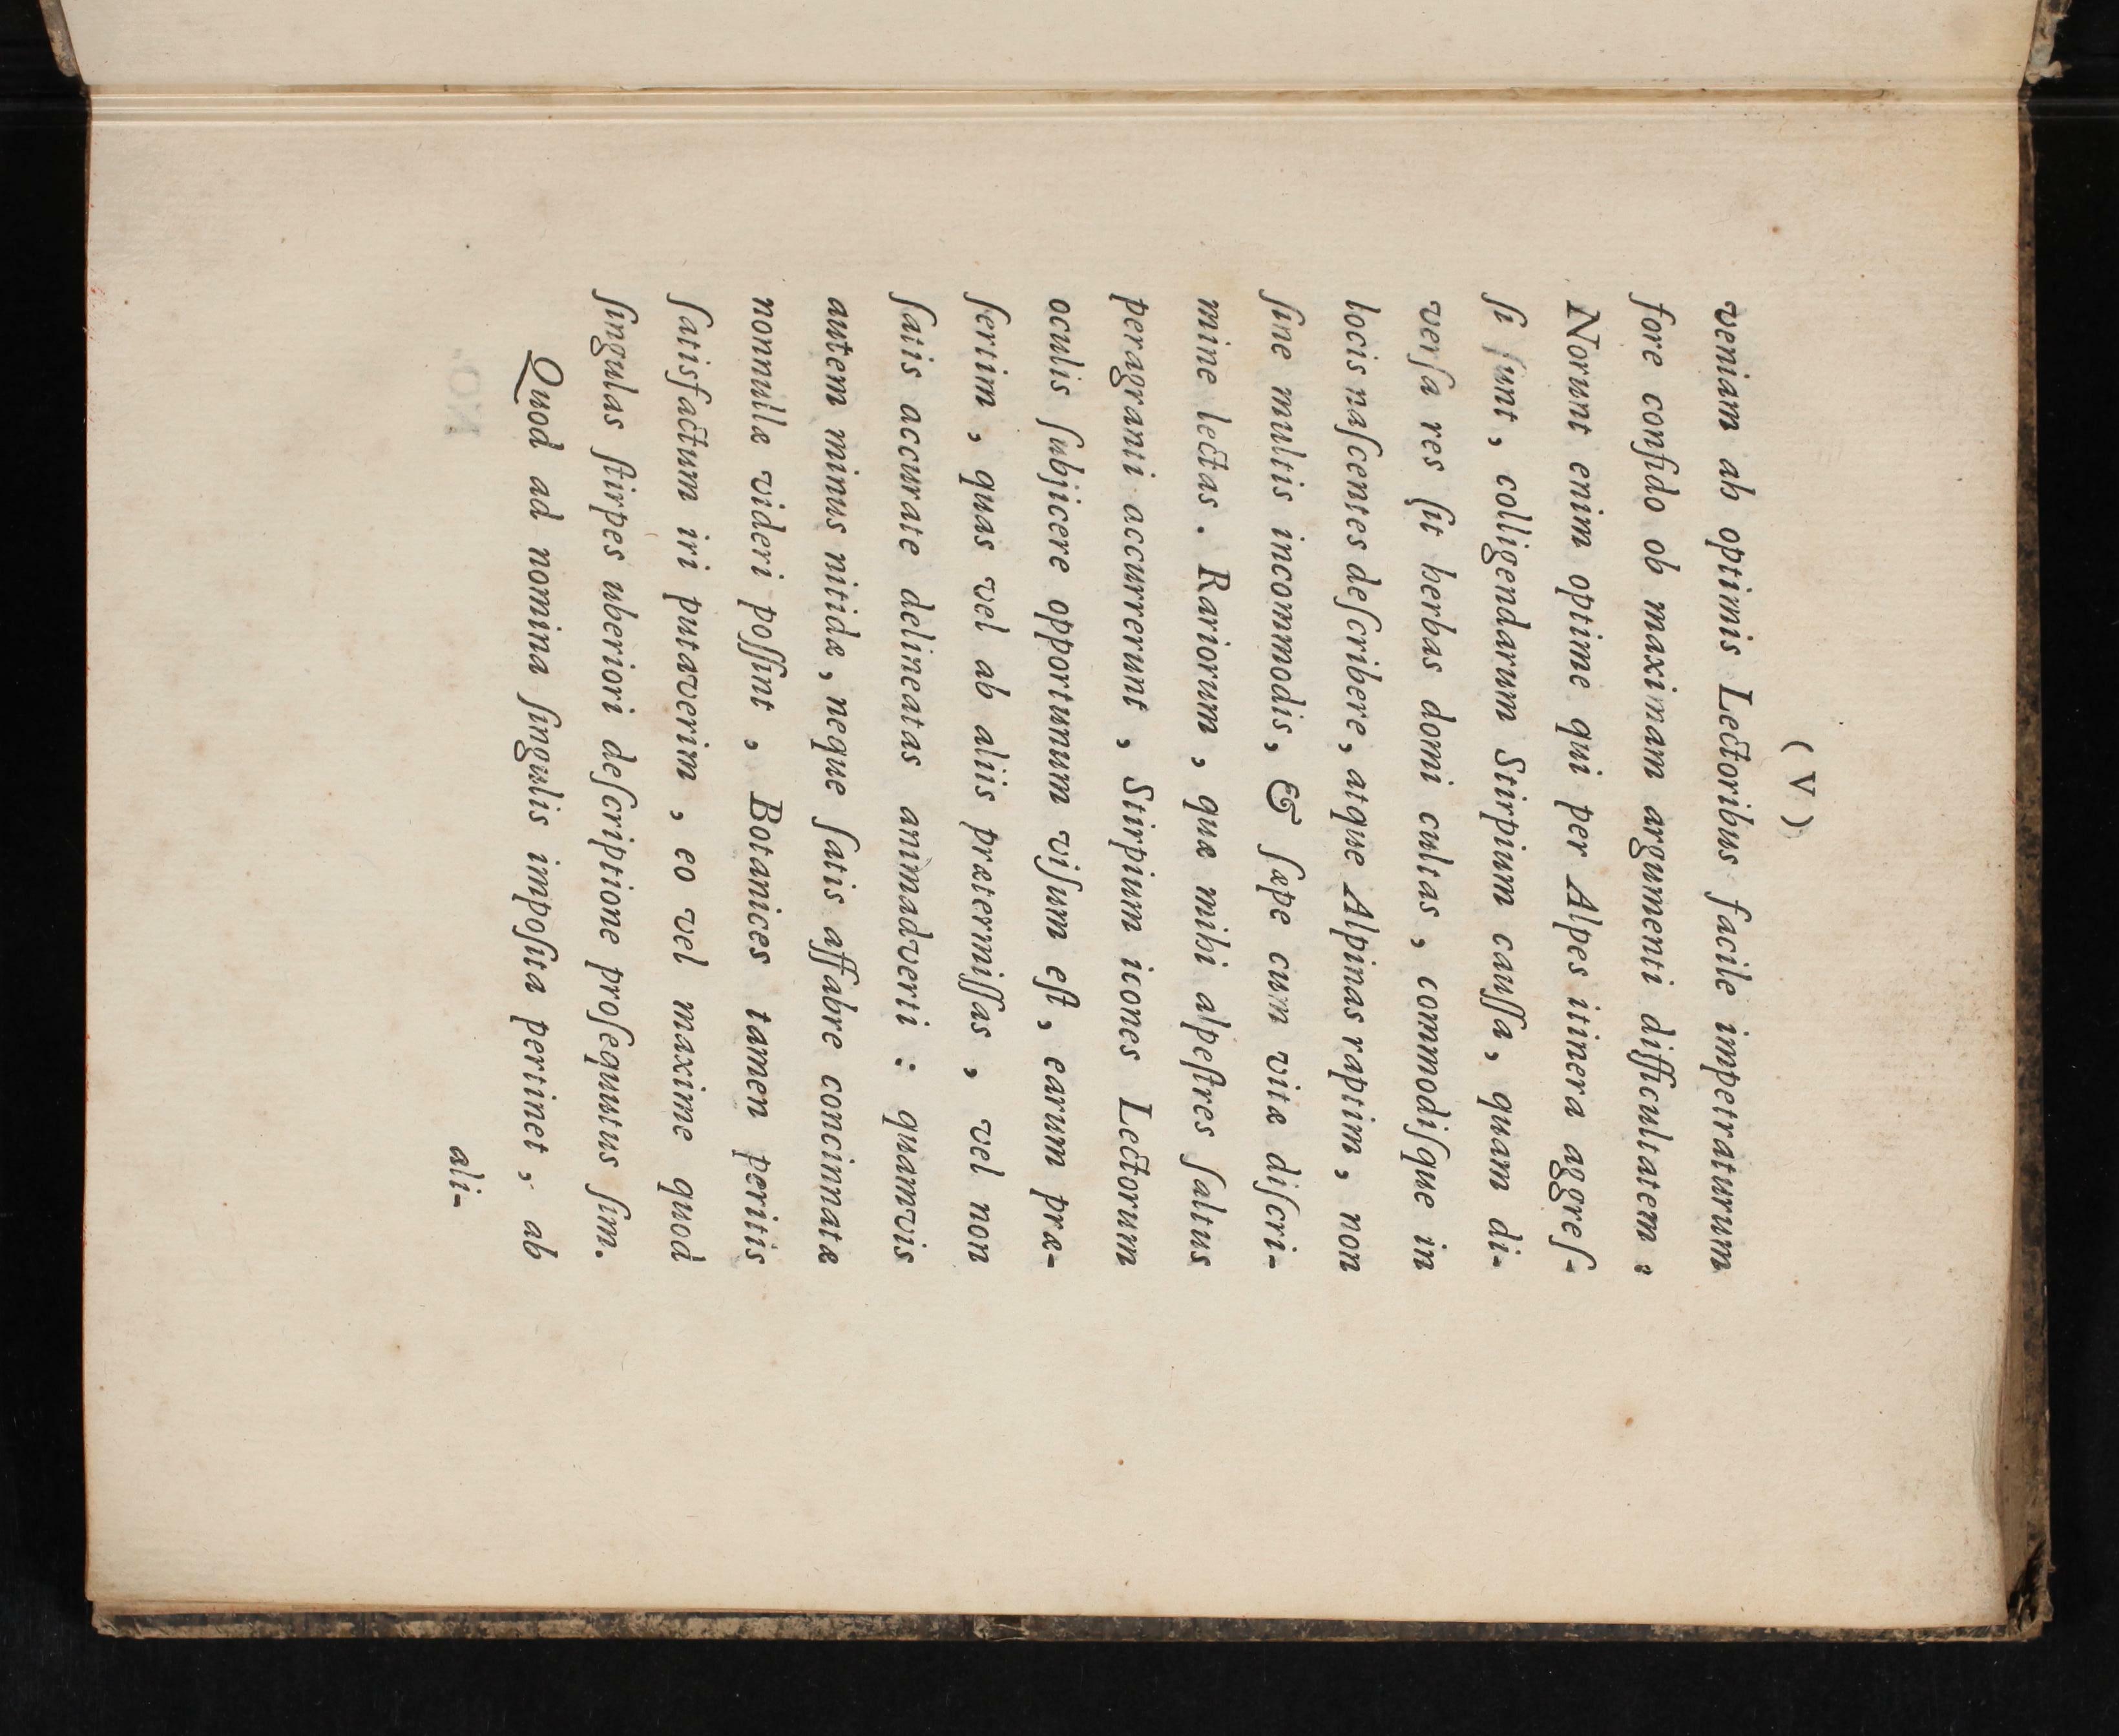 ( V )
veniam ab optimis Lectoribus facile impetraturum
fore confido ob maximam argumenti difficultatem:
Norunt enim optime qui per Alpes itinera aggreſ-
ſi ſunt, colligendarum Stirpium cauſſa, quam di-
verſa res ſit herbas domi cultas, commodiſque in
locis naſcentes deſcribere, atque Alpinas raptim, non
ſine multis incommodis, & ſæpe cum vitæ diſcri-
mine lectas. Rariorum, quæ mihi alpeſtres ſaltus
peragranti accurrerunt, Stirpium icones Lectorum
oculis ſubjicere opportunum viſum eſt, earum præ-
ſertim, quas vel ab aliis prætermiſſas, vel non
ſatis accurate delineatas animadverti: quamvis
autem minus nitidæ, neque ſatis affabre concinnatæ
nonnullæ videri poſſint, Botanices tamen peritis
ſatisfactum iri putaverim, eo vel maxime quod
ſingulas ſtirpes uberiori deſcriptione proſequutus ſim.
Quod ad nomina ſingulis impoſita pertinet, ab
ali-